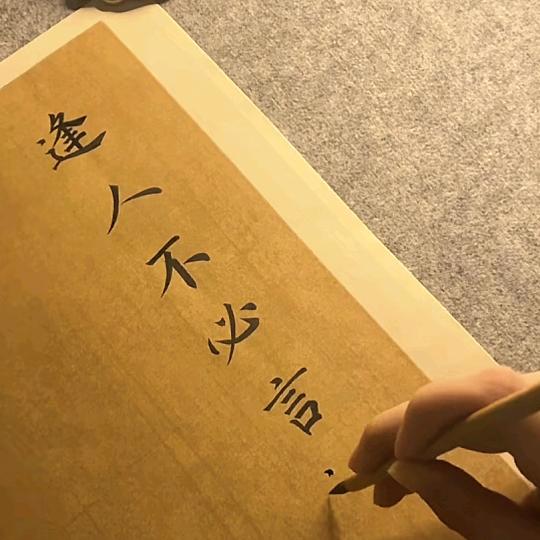 逢人不必言